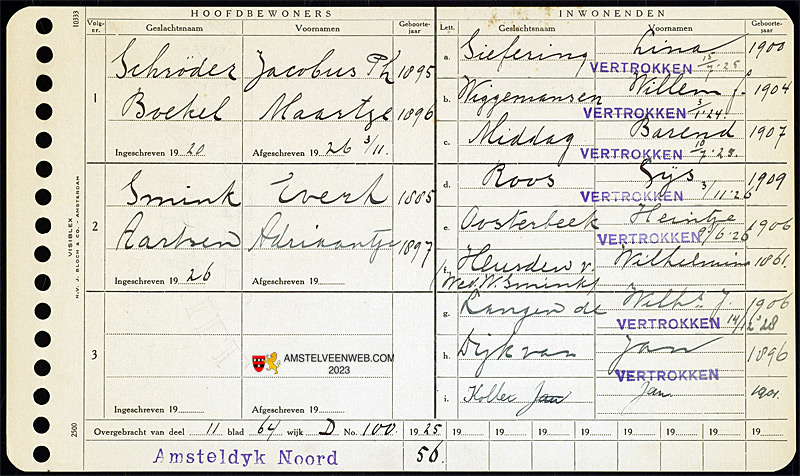 HOOFDBEWONERS INWONENDEN
Volg-nr. Geslachtsnaam Voornamen Geboorte-jaar Lett. Geslachtsnaam Voornamen Geboorte-jaar
1
Schröder Jacobus Ph 1895
Boekel Maartje 1896
Ingeschreven 19 20 Afgeschreven 19 26 3/11.
2
Smink Evert 1885
Aartsen Adriaantje 1897
Ingeschreven 19 26 Afgeschreven 19
3
Ingeschreven 19 Afgeschreven 19
a. Siefering Lina 1900
VERTROKKEN 15/7-25
b. Wiggemansen Willem J. 1904
VERTROKKEN 3/1'24.
c. Middag Barend 1907
VERTROKKEN 10/7-23.
d. Roos Gijs 1909
VERTROKKEN 3/11-26
e. Oosterbeek Heintje 1906
VERTROKKEN 9/6-26
f. Heusden v. Wilhelmina 1861.
Wed. W. Smink
g. Langen de Wilhs J. 1906
VERTROKKEN 14/12'28
h. Dijk van Jan 1896
VERTROKKEN
i. Koller Jan Jan. 1901.
Overgebracht van deel 11 blad 64 wijk D No. 100. 1925 19 19 19 19 19 19 19 19
Amsteldyk Noord 56.
10333
VISIBLEX
N.V. J. BLOCH & CO. - AMSTERDAM
2500
AMSTELVEENWEB.COM
2023